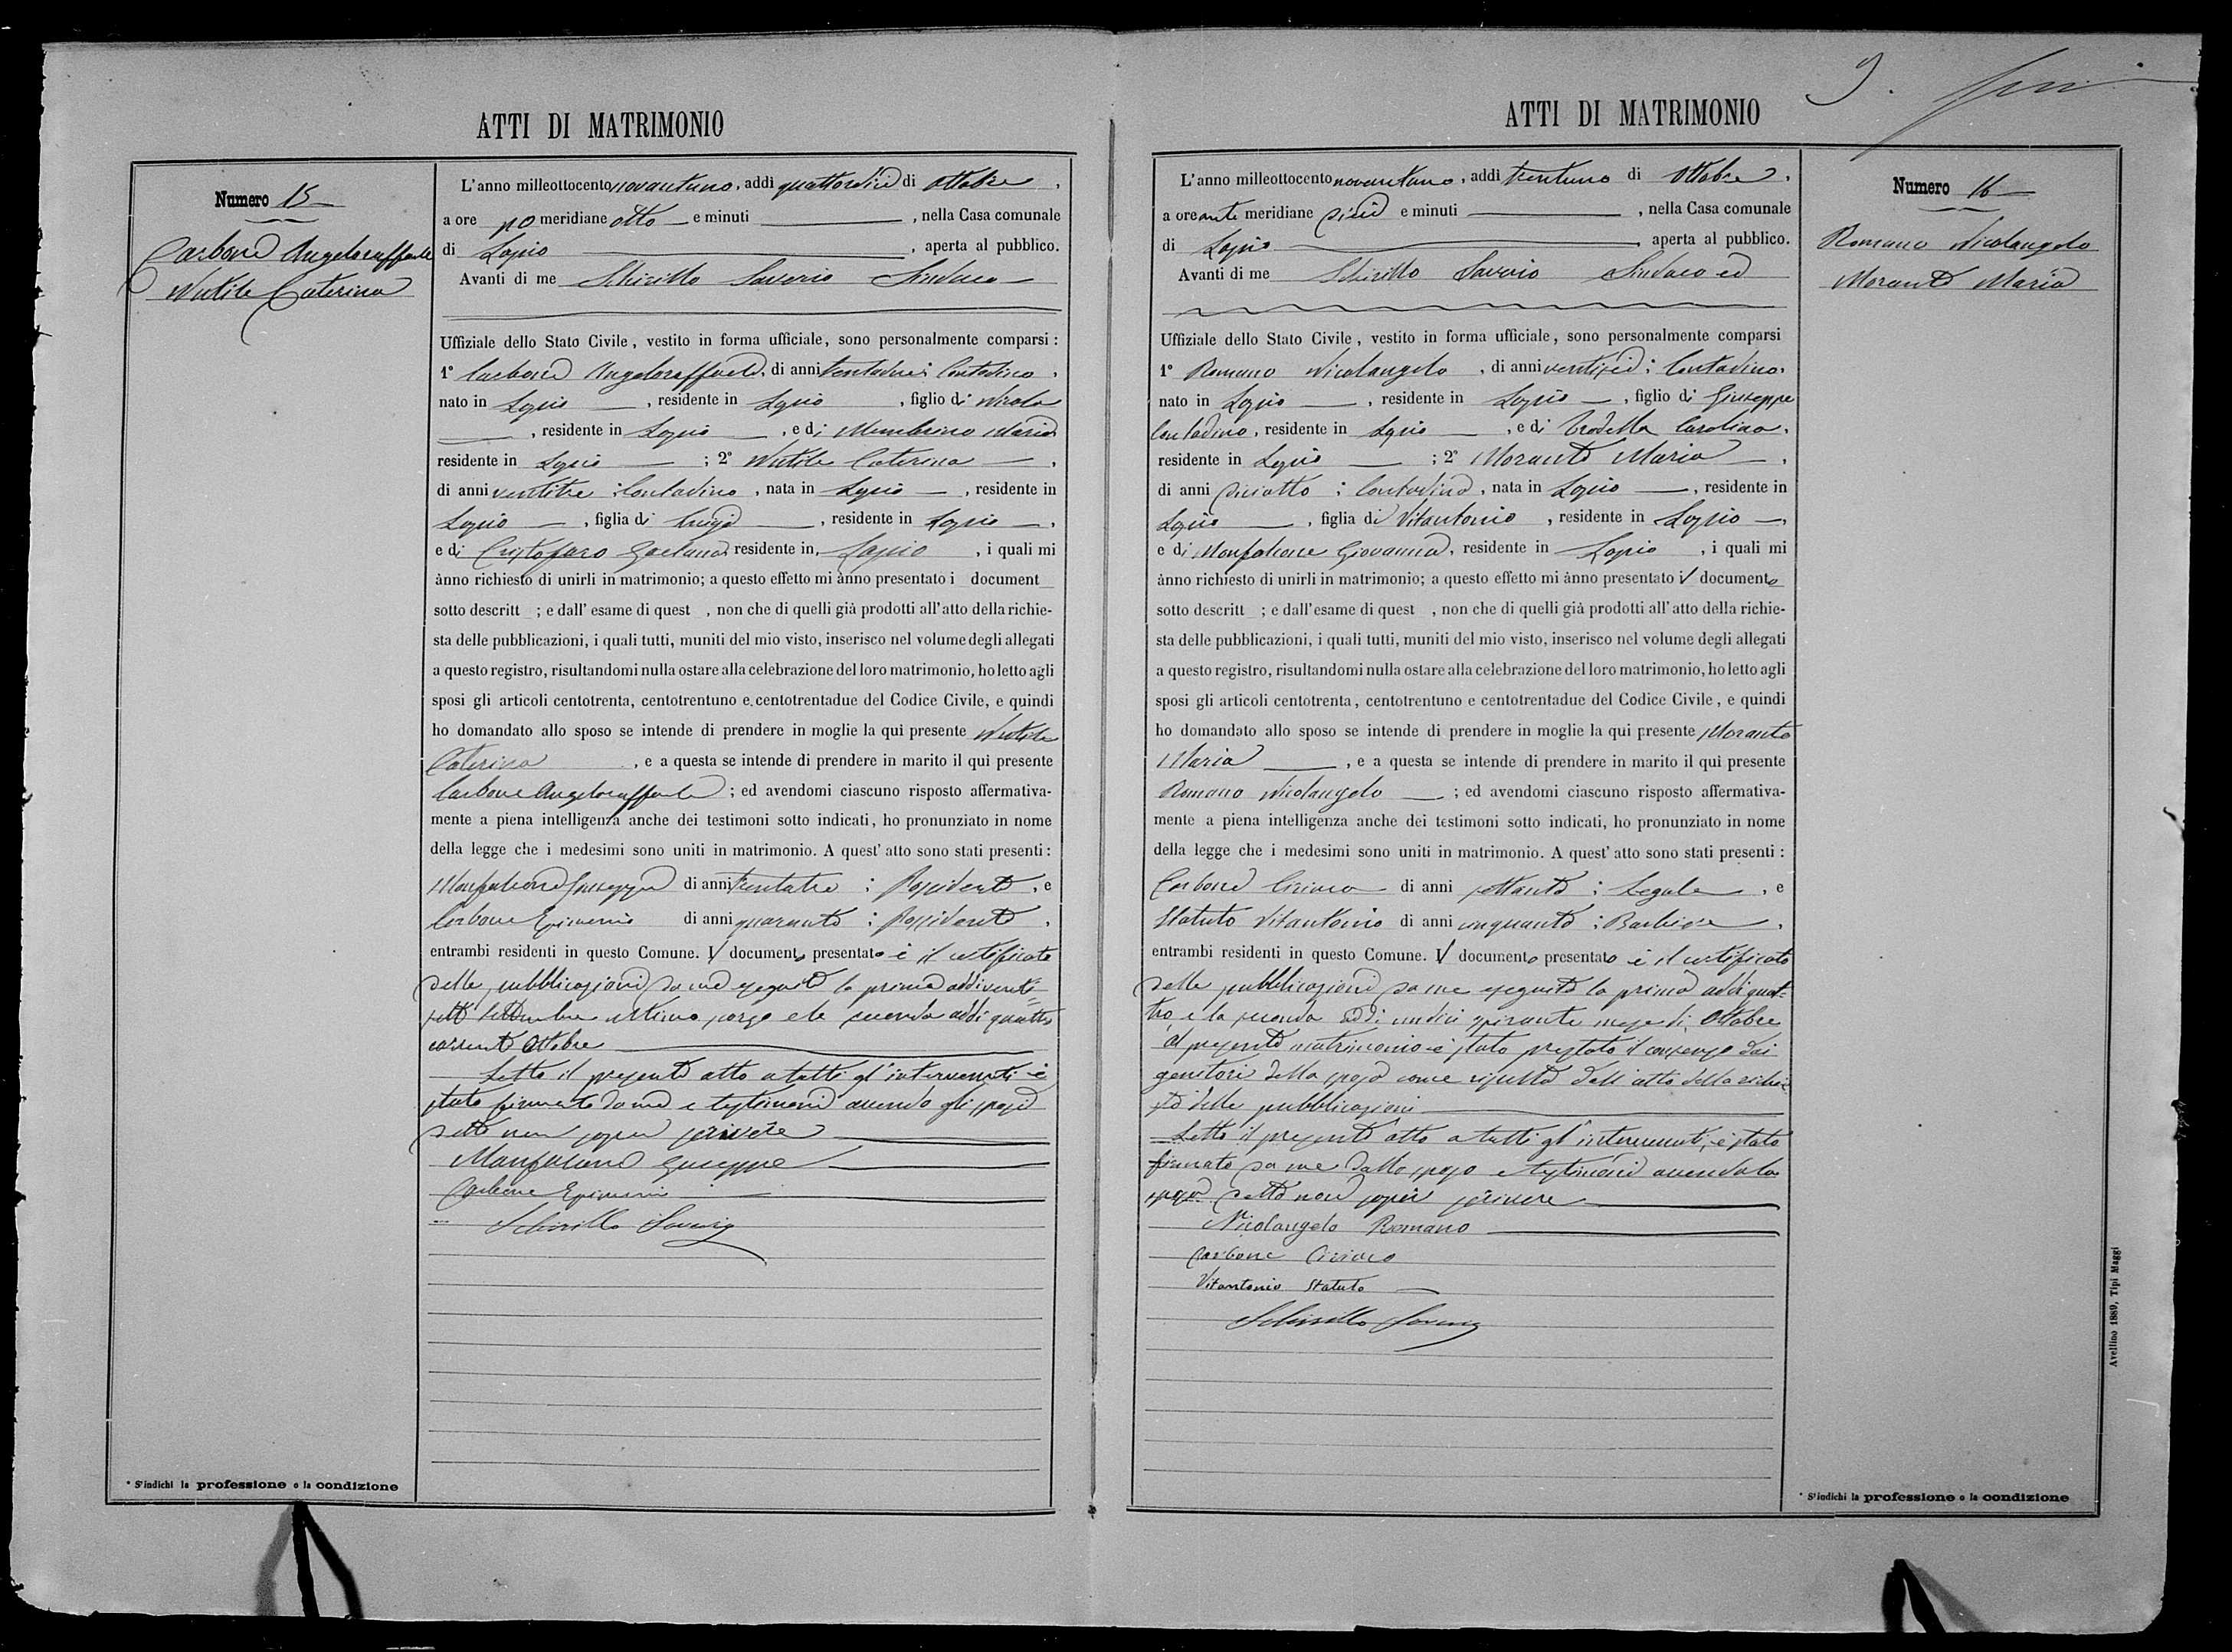 ATTI DI MATRIMONIO
Numero 15
Carbone Angeloraffaele
Nutile Caterina
L'anno milleottocentonovantuno, addì quattordici di Ottobre,
a ore po meridiane otto e minuti , nella Casa comunale
di Lapio , aperta al pubblico.
Avanti di me Schirillo Saverio Sindaco
Uffiziale dello Stato Civile, vestito in forma ufficiale, sono personalmente comparsi:
1° Carbone Angeloraffaele, di anni trentadue; Contadino,
nato in Lapio , residente in Lapio , figlio di Nicola
, residente in Lapio , e di Membrino Maria
residente in Lapio ; 2° Nutile Caterina ,
di anni ventitre; Contadina, nata in Lapio , residente in
Lapio , figlia di Luigi , residente in Lapio ,
e di Cristofaro Gaetana, residente in, Lapio , i quali mi
ànno richiesto di unirli in matrimonio; a questo effetto mi ànno presentato i document
sotto descritt ; e dall'esame di quest , non che di quelli già prodotti all'atto della richie-
sta delle pubblicazioni, i quali tutti, muniti del mio visto, inserisco nel volume degli allegati
a questo registro, risultandomi nulla ostare alla celebrazione del loro matrimonio, ho letto agli
sposi gli articoli centotrenta, centotrentuno e centotrentadue del Codice Civile, e quindi
ho domandato allo sposo se intende di prendere in moglie la qui presente Nutile
Caterina , e a questa se intende di prendere in marito il qui presente
Carbone Angeloraffaele ; ed avendomi ciascuno risposto affermativa-
mente a piena intelligenza anche dei testimoni sotto indicati, ho pronunziato in nome
della legge che i medesimi sono uniti in matrimonio. A quest'atto sono stati presenti:
Monfalcone Giuseppe di anni trentatre ; Possidente, e
Carbone Epimenio di anni quaranta ; Possidente,
entrambi residenti in questo Comune. Il documento presentato è il certificato
delle pubblicazioni da me eseguite la prima addì venti=
sette Settembre ultimo scorso e la seconda addì quattro
corrente Ottobre
Letto il presente atto a tutti gl'intervenuti è
stato firmato da me e testimoni avendo gli sposi
detto non saper scrivere
Monfalcone Giuseppe
Carbone Epimenio
Schirillo Saverio
* S'indichi la professione o la condizione
ATTI DI MATRIMONIO
9.
Numero 16
Romano Nicolangelo
Morante Maria
L'anno milleottocentonovantuno, addì trentuno di Ottobre,
a ore ante meridiane dieci e minuti , nella Casa comunale
di Lapio , aperta al pubblico.
Avanti di me Schirillo Saverio Sindaco ed
Uffiziale dello Stato Civile, vestito in forma ufficiale, sono personalmente comparsi
1° Romano Nicolangelo , di anni ventisei; Contadino,
nato in Lapio , residente in Lapio , figlio di Giuseppe
Contadino, residente in Lapio , e di Trodella Carolina,
residente in Lapio ; 2° Morante Maria ,
di anni diciotto ; Contadina, nata in Lapio , residente in
Lapio , figlia di Vitantonio , residente in Lapio ,
e di Monfalcone Giovanna, residente in Lapio , i quali mi
ànno richiesto di unirli in matrimonio; a questo effetto mi ànno presentato il documento
sotto descritt ; e dall'esame di quest , non che di quelli già prodotti all'atto della richie-
sta delle pubblicazioni, i quali tutti, muniti del mio visto, inserisco nel volume degli allegati
a questo registro, risultandomi nulla ostare alla celebrazione del loro matrimonio, ho letto agli
sposi gli articoli centotrenta, centotrentuno e centotrentadue del Codice Civile, e quindi
ho domandato allo sposo se intende di prendere in moglie la qui presente Morante
Maria , e a questa se intende di prendere in marito il qui presente
Romano Nicolangelo ; ed avendomi ciascuno risposto affermativa-
mente a piena intelligenza anche dei testimoni sotto indicati, ho pronunziato in nome
della legge che i medesimi sono uniti in matrimonio. A quest'atto sono stati presenti:
Carbone Ciriaco di anni settanta ; Legale , e
Statuto Vitantonio di anni cinquanta ; Barbiere ,
entrambi residenti in questo Comune. Il documento presentato è il certificato
delle pubblicazioni da me eseguite la prima addì quat=
tro, e la seconda addì undici spirante mese di Ottobre
Al presente matrimonio è stato prestato il consenso dai
genitori della sposa come risulta dall'atto della richie
sta delle pubblicazioni
Letto il presente atto a tutti gl'intervenuti, è stato
firmato da me dallo sposo e testimoni avendo la
sposa detto non saper scrivere
Nicolangelo Romano
Carbone Ciriaco
Vitantonio Statuto
Schirillo Saverio
* S'indichi la professione o la condizione
Avellino 1889, Tipi Maggi